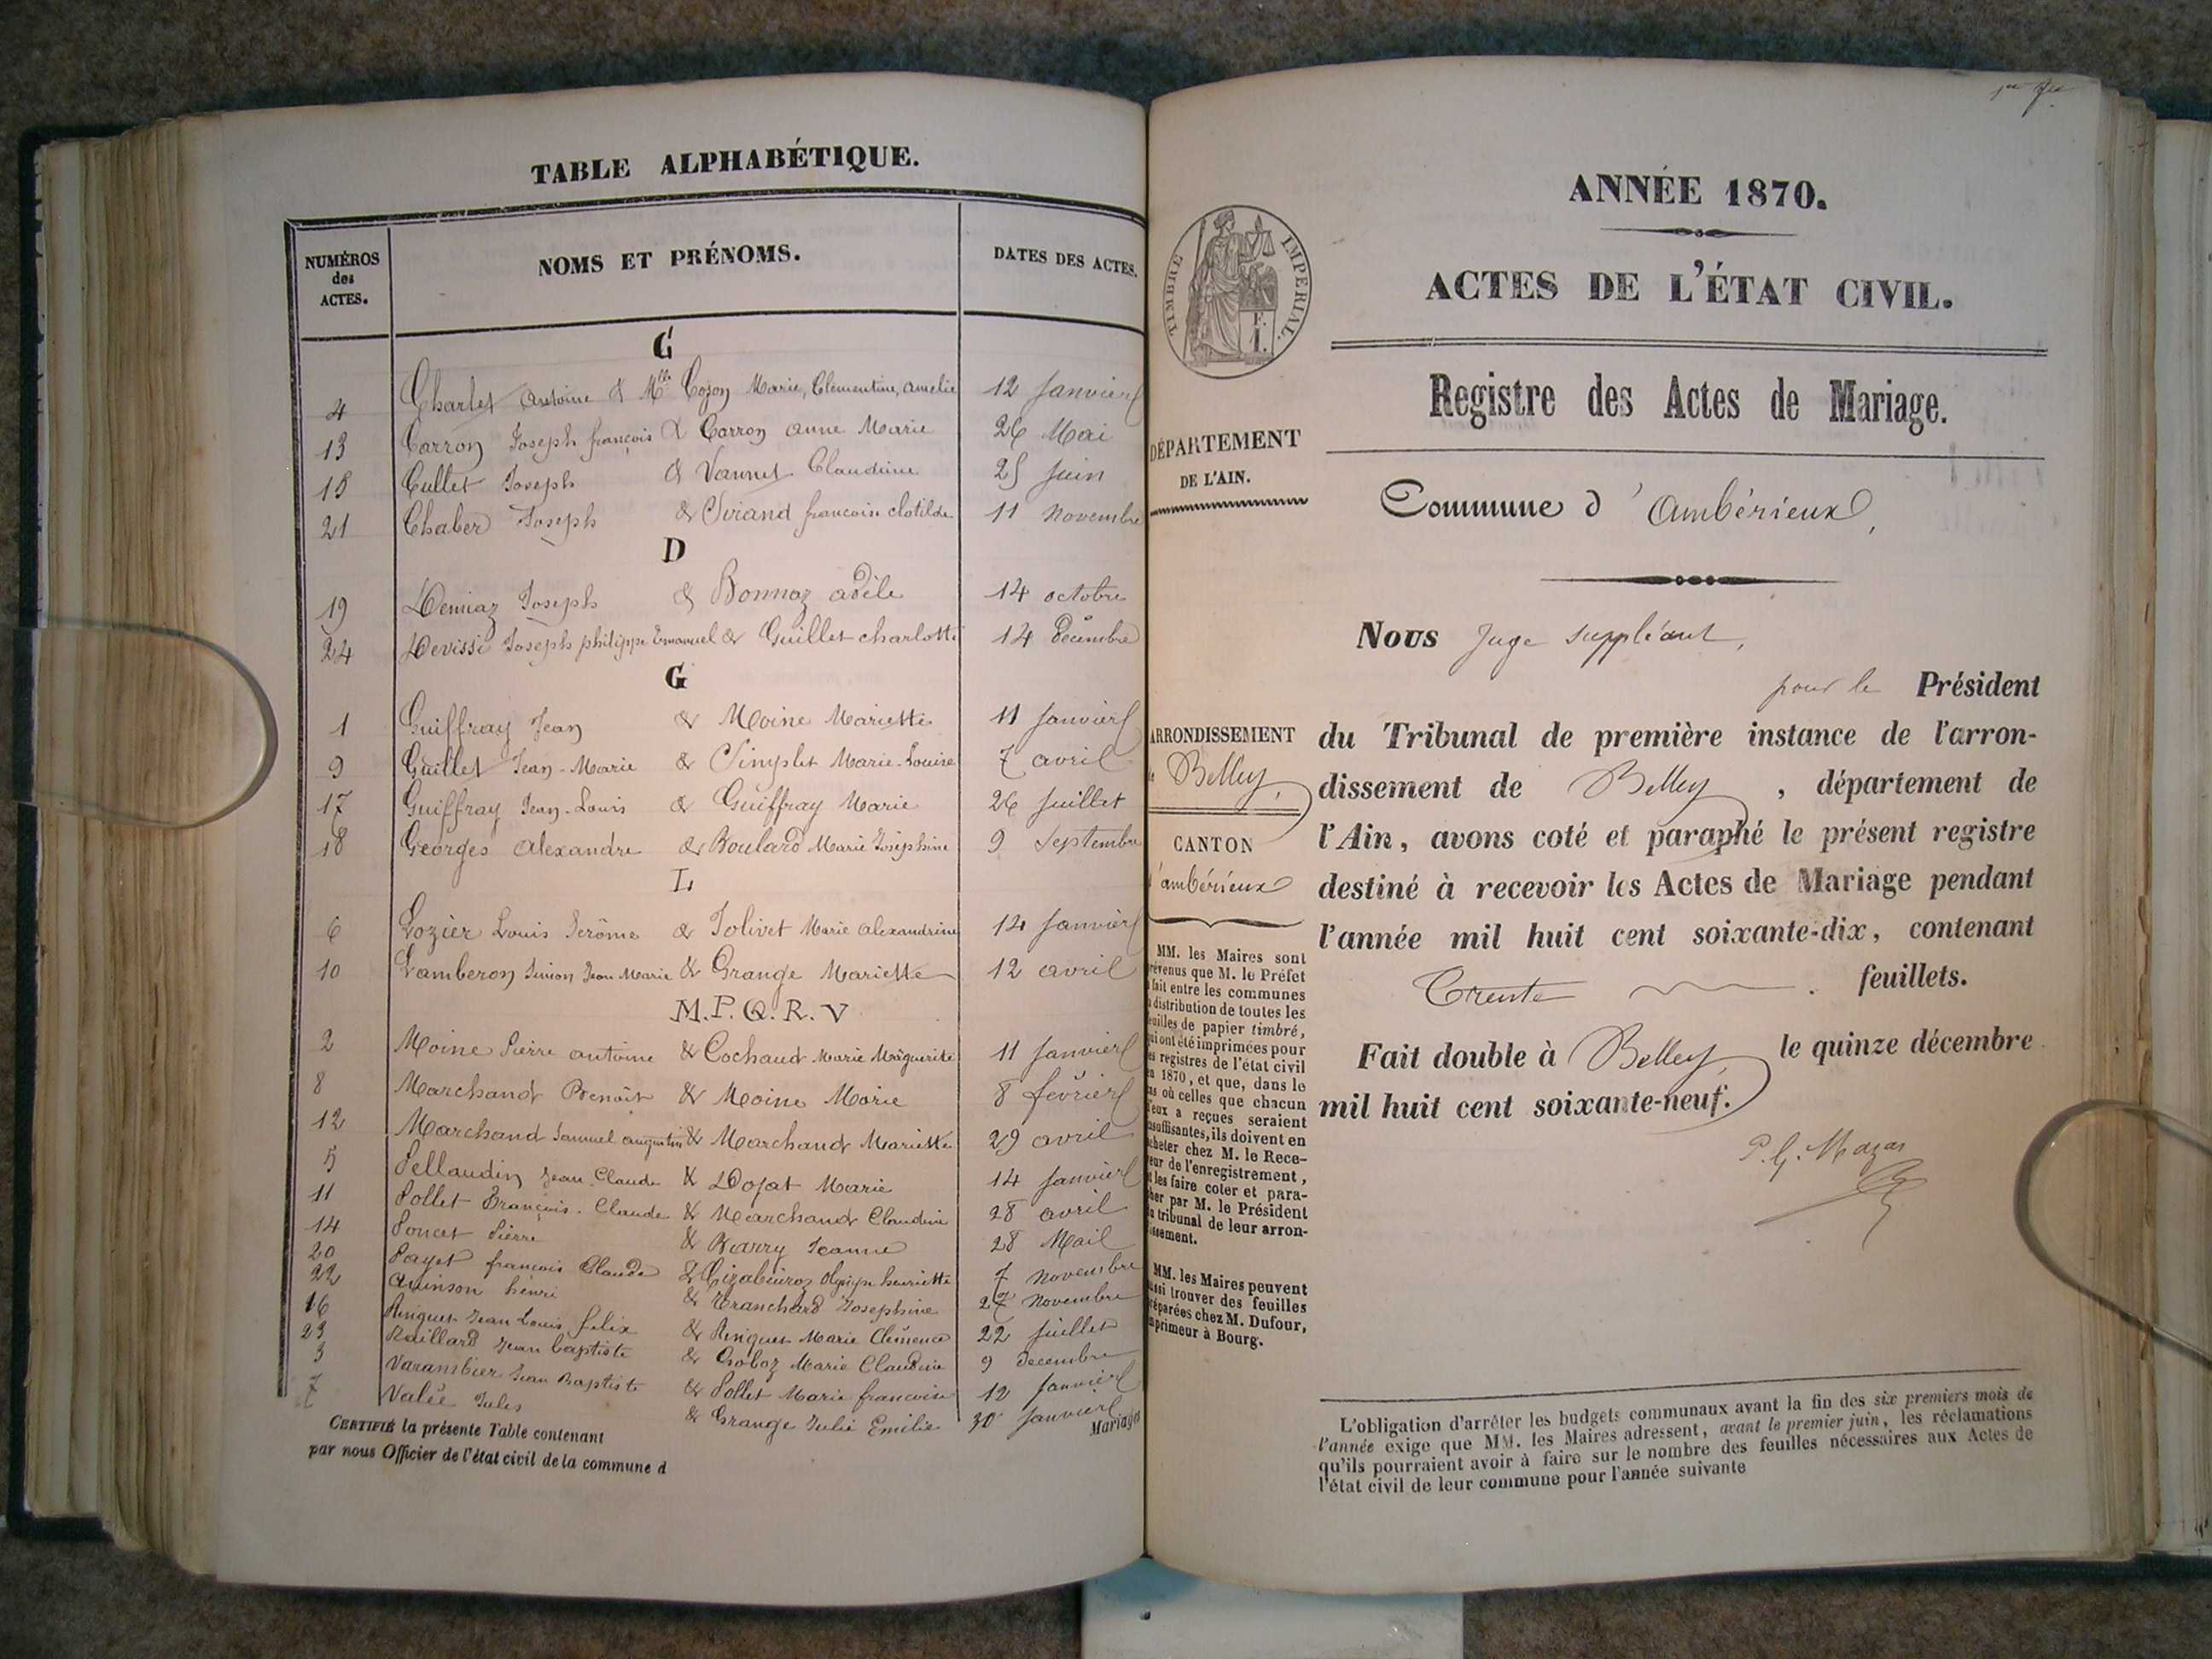 TABLE ALPHABÉTIQUE.
NUMÉROS des ACTES. NOMS ET PRÉNOMS. DATES DES ACTES.
C
4 Charlet Antoine & Mlle Cozon Marie, Clémentine, Amélie 12 Janvier
13 Carron Joseph françois & Carron Anne Marie 26 Mai
15 Cullet Joseph & Vannet Claudine 25 Juin
21 Chaber Joseph & Sirand françoise clotilde 11 Novembre
D
19 Demiaz Joseph & Bonnaz adèle 14 octobre
24 Devissi Joseph philippe Emanuel & Guillet charlotte 14 décembre
G
1 Guiffray Jean & Moine Mariette 11 Janvier
9 Guillet Jean-Marie & Simplet Marie-Louise 7 avril
17 Guiffray Jean-Louis & Guiffray Marie 26 Juillet
18 Georges Alexandre & Boulard Marie Joséphine 9 Septembre
L
6 Lozier Louis Jérôme & Jolivet Marie alexandrine 14 Janvier
10 Lamberon Simon Jean Marie & Grange Mariette 12 avril
M.P.Q.R.V
2 Moine Pierre antoine & Cochaud Marie Marguerite 11 Janvier
8 Marchand Benoit & Moine Marie 8 février
12 Marchand Samuel augustin & Marchand Mariette 29 avril
5 Pellaudin Jean-Claude & Dojat Marie 14 Janvier
11 Pollet François-Claude & Marchand Claudine 28 avril
14 Poncet Pierre & Barry Jeanne 28 Mai
20 Payet françois Claude & henriette 7 Novembre
22 Quinson henri & Tranchard Josephine 27 Novembre
16 Riniguet Jean Louis félix & Riniguet Marie Clémence 22 Juillet
23 Raillard Jean baptiste & Goboz Marie Claudine 9 Decembre
3 Varambier Jean Baptiste & Pollet Marie françoise 12 Janvier
7 Valée Jules & Grange Julie Emilie 30 Janvier
Mariages
CERTIFIÉ la présente Table contenant
par nous Officier de l'état civil de la commune d
ANNÉE 1870.
TIMBRE IMPÉRIAL.
ACTES DE L'ÉTAT CIVIL.
Registre des Actes de Mariage.
DÉPARTEMENT
DE L'AIN.
Commune d'Ambérieux,
Nous Juge suppléant,
pour le Président
du Tribunal de première instance de l'arron-
dissement de Belley, département de
l'Ain, avons coté et paraphé le présent registre
destiné à recevoir les Actes de Mariage pendant
l'année mil huit cent soixante-dix, contenant
Trente feuillets.
Fait double à Belley, le quinze décembre
mil huit cent soixante-neuf.
P. G. Mazas
ARRONDISSEMENT
de Belley,
CANTON
d'ambérieux
MM. les Maires sont
prévenus que M. le Préfet
a fait entre les communes
la distribution de toutes les
feuilles de papier timbré,
qui ont été imprimées pour
les registres de l'état civil
en 1870, et que, dans le
cas où celles que chacun
d'eux a reçues seraient
insuffisantes, ils doivent en
acheter chez M. le Rece-
veur de l'enregistrement,
et les faire coter et para-
pher par M. le Président
du tribunal de leur arron-
dissement.
MM. les Maires peuvent
aussi trouver des feuilles
préparées chez M. Dufour,
imprimeur à Bourg.
L'obligation d'arrêter les budgets communaux avant la fin des six premiers mois de
l'année exige que MM. les Maires adressent, avant le premier juin, les réclamations
qu'ils pourraient avoir à faire sur le nombre des feuilles nécessaires aux Actes de
l'état civil de leur commune pour l'année suivante